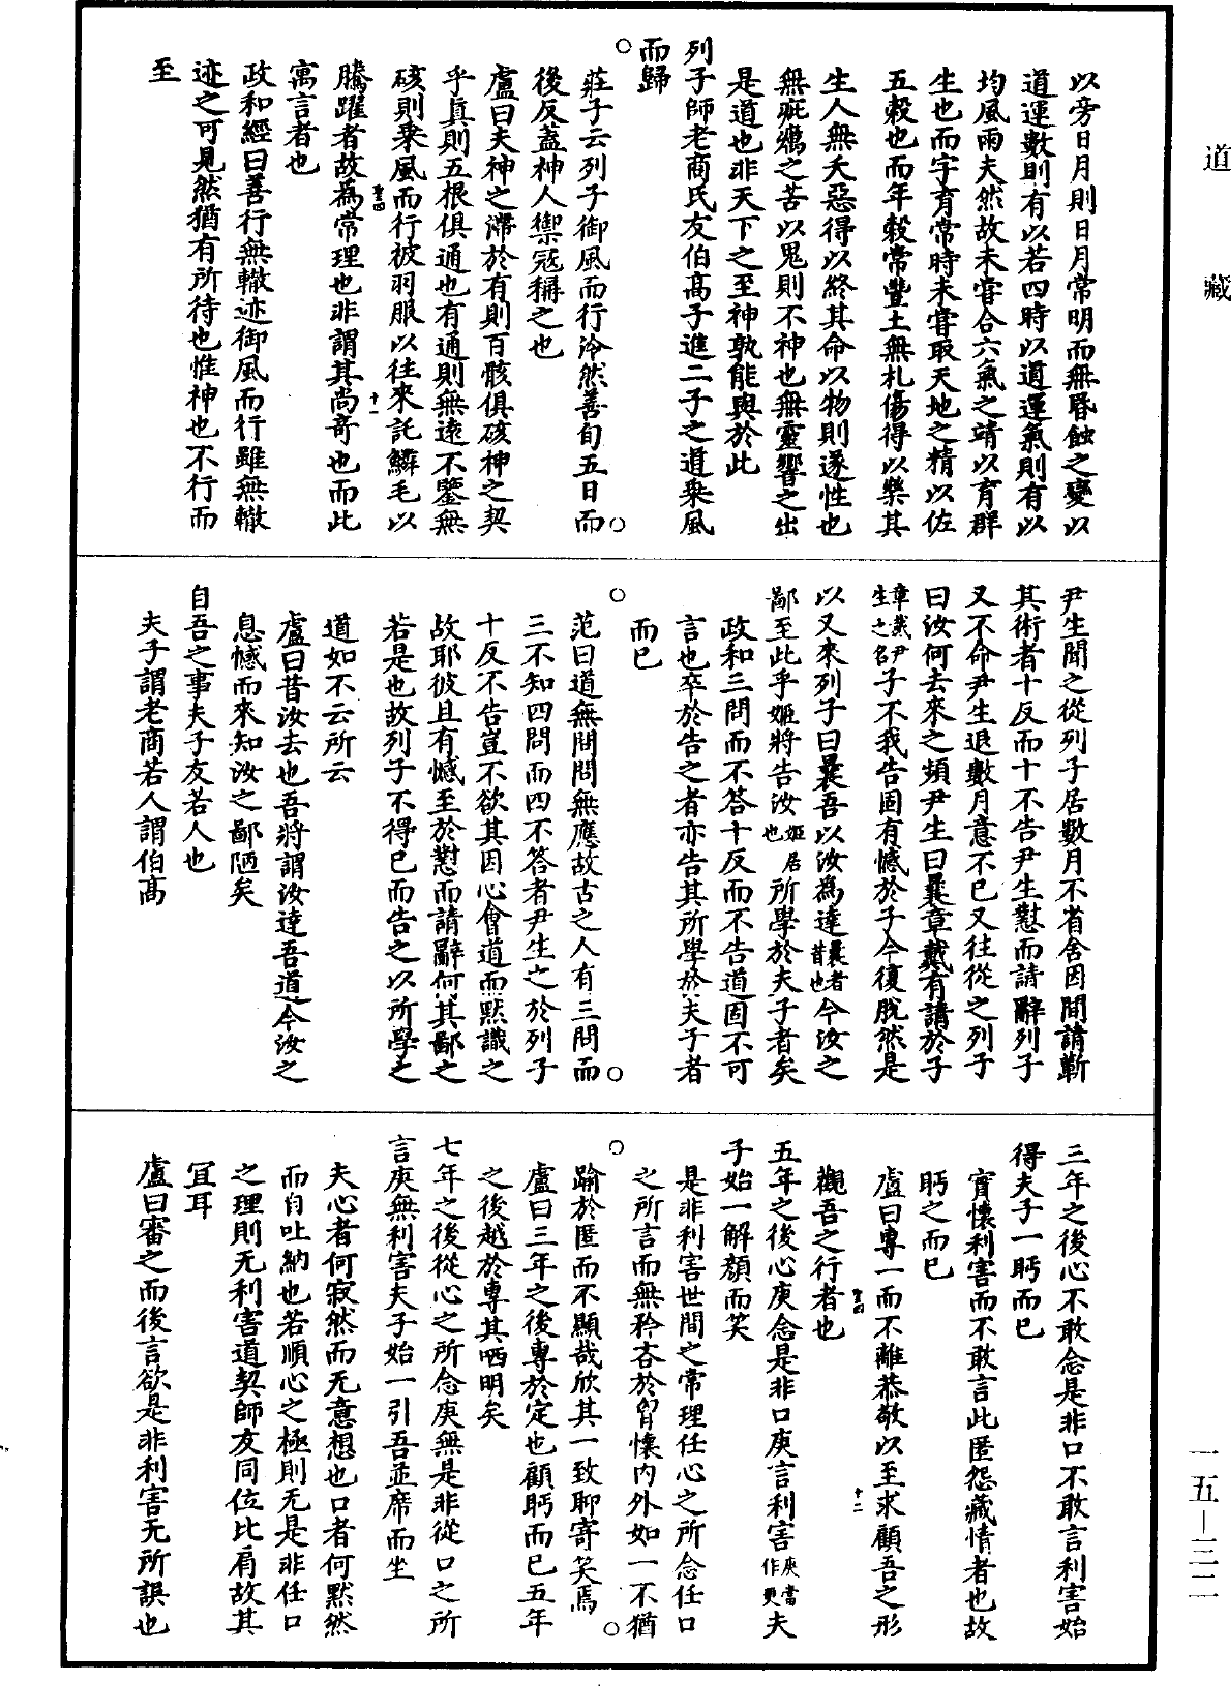 道藏
以旁日月則日月常明而無昏蝕之變以
道運數則有以若四時以道運氣則有以
均風雨夫然故未嘗合六氣之精以育群
生也而字育常時未嘗取天地之精以佐
五穀也而年穀常豐土無札傷得以樂其
生人無夭惡得以終其命以物則遂性也
無疵癘之苦以鬼則不神也無靈響之出
是道也非天下之至神孰能與於此
列子師老商氏友伯高子進二子之道乘風
而歸
莊子云列子御風而行泠然善旬五日而
後反蓋神人禦寇稱之也
盧曰夫神之滯於有則百骸俱硋神之契
乎真則五根俱通也有通則無遠不鑒無
硋則乘風而行被羽服以往來託鱗毛以
騰躍者故為常理也非謂其尚奇也而此
寓言者也
政和經曰善行無轍迹御風而行雖無轍
迹之可見然猶有所待也惟神也不行而
至
尹生聞之從列子居數月不省舍因間請蘄
其術者十反而十不告尹生懟而請辭列子
又不命尹生退數月意不已又往從之列子
曰汝何去來之頻尹生曰曩章戴有請於子
章戴尹生之名子不我告固有憾於子今復脫然是
以又來列子曰曩吾以汝為達曩者昔也今汝之
鄙至此乎姬將告汝姬居也所學於夫子者矣
政和三問而不答十反而不告道固不可
言也卒於告之者亦告其所學於夫子者
而已
范曰道無問問無應故古之人有三問而
三不知四問而四不答者尹生之於列子
十反不告豈不欲其因心會道而默識之
故耶彼且有憾至於懟而請辭何其鄙之
若是也故列子不得已而告之以所學之
道如不云所云
盧曰昔汝去也吾將謂汝達吾道今汝之
息憾而來知汝之鄙陋矣
自吾之事夫子友若人也
夫子謂老商若人謂伯高
三年之後心不敢念是非口不敢言利害始
得夫子一眄而已
實懷利害而不敢言此匿怨藏情者也故
眄之而已
盧曰專一而不離恭敬以至求顧吾之形
觀吾之行者也
五年之後心庚念是非口庚言利害庚當作更夫
子始一解顏而笑
是非利害世間之常理任心之所念任口
之所言而無矜吝於胷懷內外如一不猶
踰於匿而不顯哉欣其一致聊寄笑焉
盧曰三年之後專於定也顧眄而已五年
之後越於專其哂明矣
七年之後從心之所念庚無是非從口之所
言庚無利害夫子始一引吾並席而坐
夫心者何寂然而无意想也口者何默然
而自吐納也若順心之極則无是非任口
之理則无利害道契師友同位比肩故其
冝耳
盧曰審之而後言欲是非利害无所誤也
一五—三二